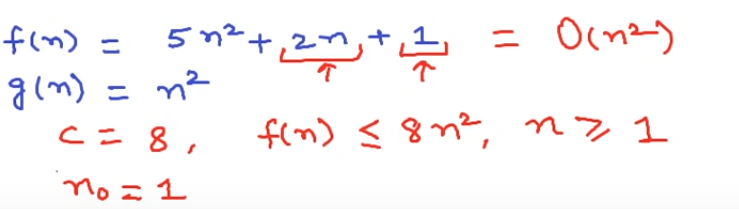 f(n) = 5n² + 2n + 1 = O(n²)
↑ ↑
g(n) = n²
c = 8, f(n) ≤ 8n², n ≥ 1
n₀ = 1